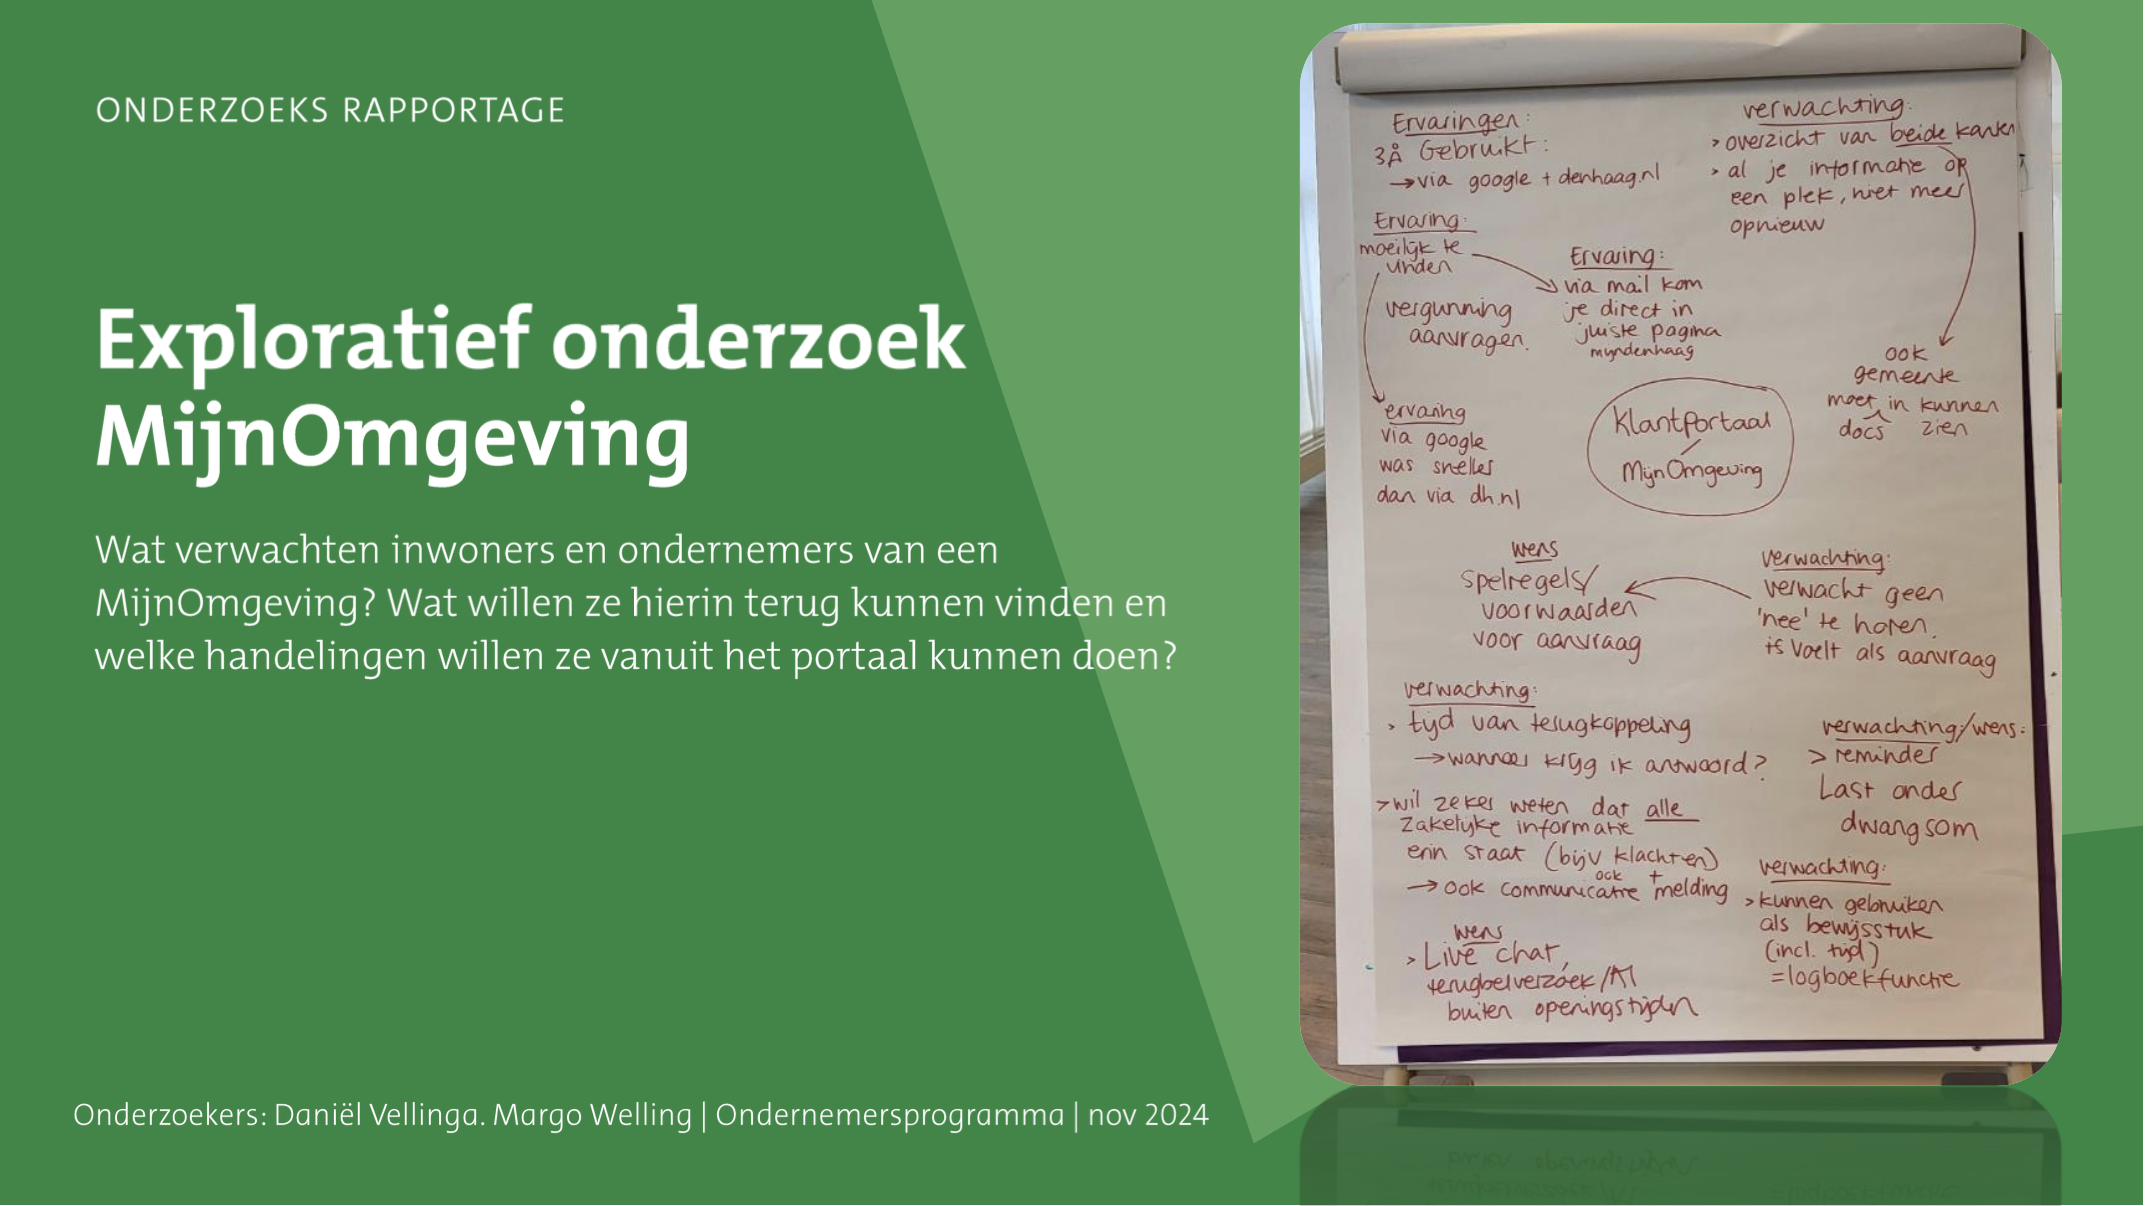 ONDERZOEKS RAPPORTAGE
Exploratief onderzoek
MijnOmgeving
Wat verwachten inwoners en ondernemers van een
MijnOmgeving? Wat willen ze hierin terug kunnen vinden en
welke handelingen willen ze vanuit het portaal kunnen doen?
Onderzoekers: Daniël Vellinga. Margo Welling | Ondernemersprogramma | nov 2024
Ervaringen:
Gebruikt:
→ via google + denhaag.nl
verwachting:
> overzicht van beide kanten
> al je informatie op
een plek, niet meer
opnieuw
Ervaring:
moeilijk te
vinden
vergunning
aanvragen.
Ervaring:
via mail kom
je direct in
juiste pagina
mijndenhaag
ook
gemeente
moet in kunnen
docs zien
ervaring
via google
was sneller
dan via dh.nl
Klantportaal
/
MijnOmgeving
wens
spelregels/
voorwaarden
voor aanvraag
verwachting:
verwacht geen
'nee' te horen.
voelt als aanvraag
verwachting:
> tijd van terugkoppeling
→ wanneer krijg ik antwoord?
> wil zeker weten dat alle
zakelijke informatie
erin staat (bijv klachten)
ook +
→ ook communicatie melding
verwachting/wens:
> reminder
Last onder
dwangsom
verwachting:
> kunnen gebruiken
als bewijsstuk
(incl. tijd)
= logboekfunctie
wens
> Live chat,
terugbelverzoek/AI
buiten openingstijden